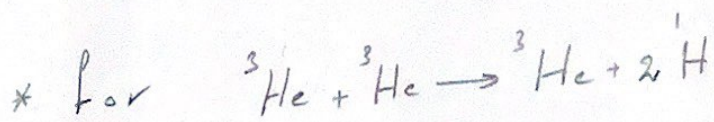 * for ³He + ³He → ³He + 2 ¹H